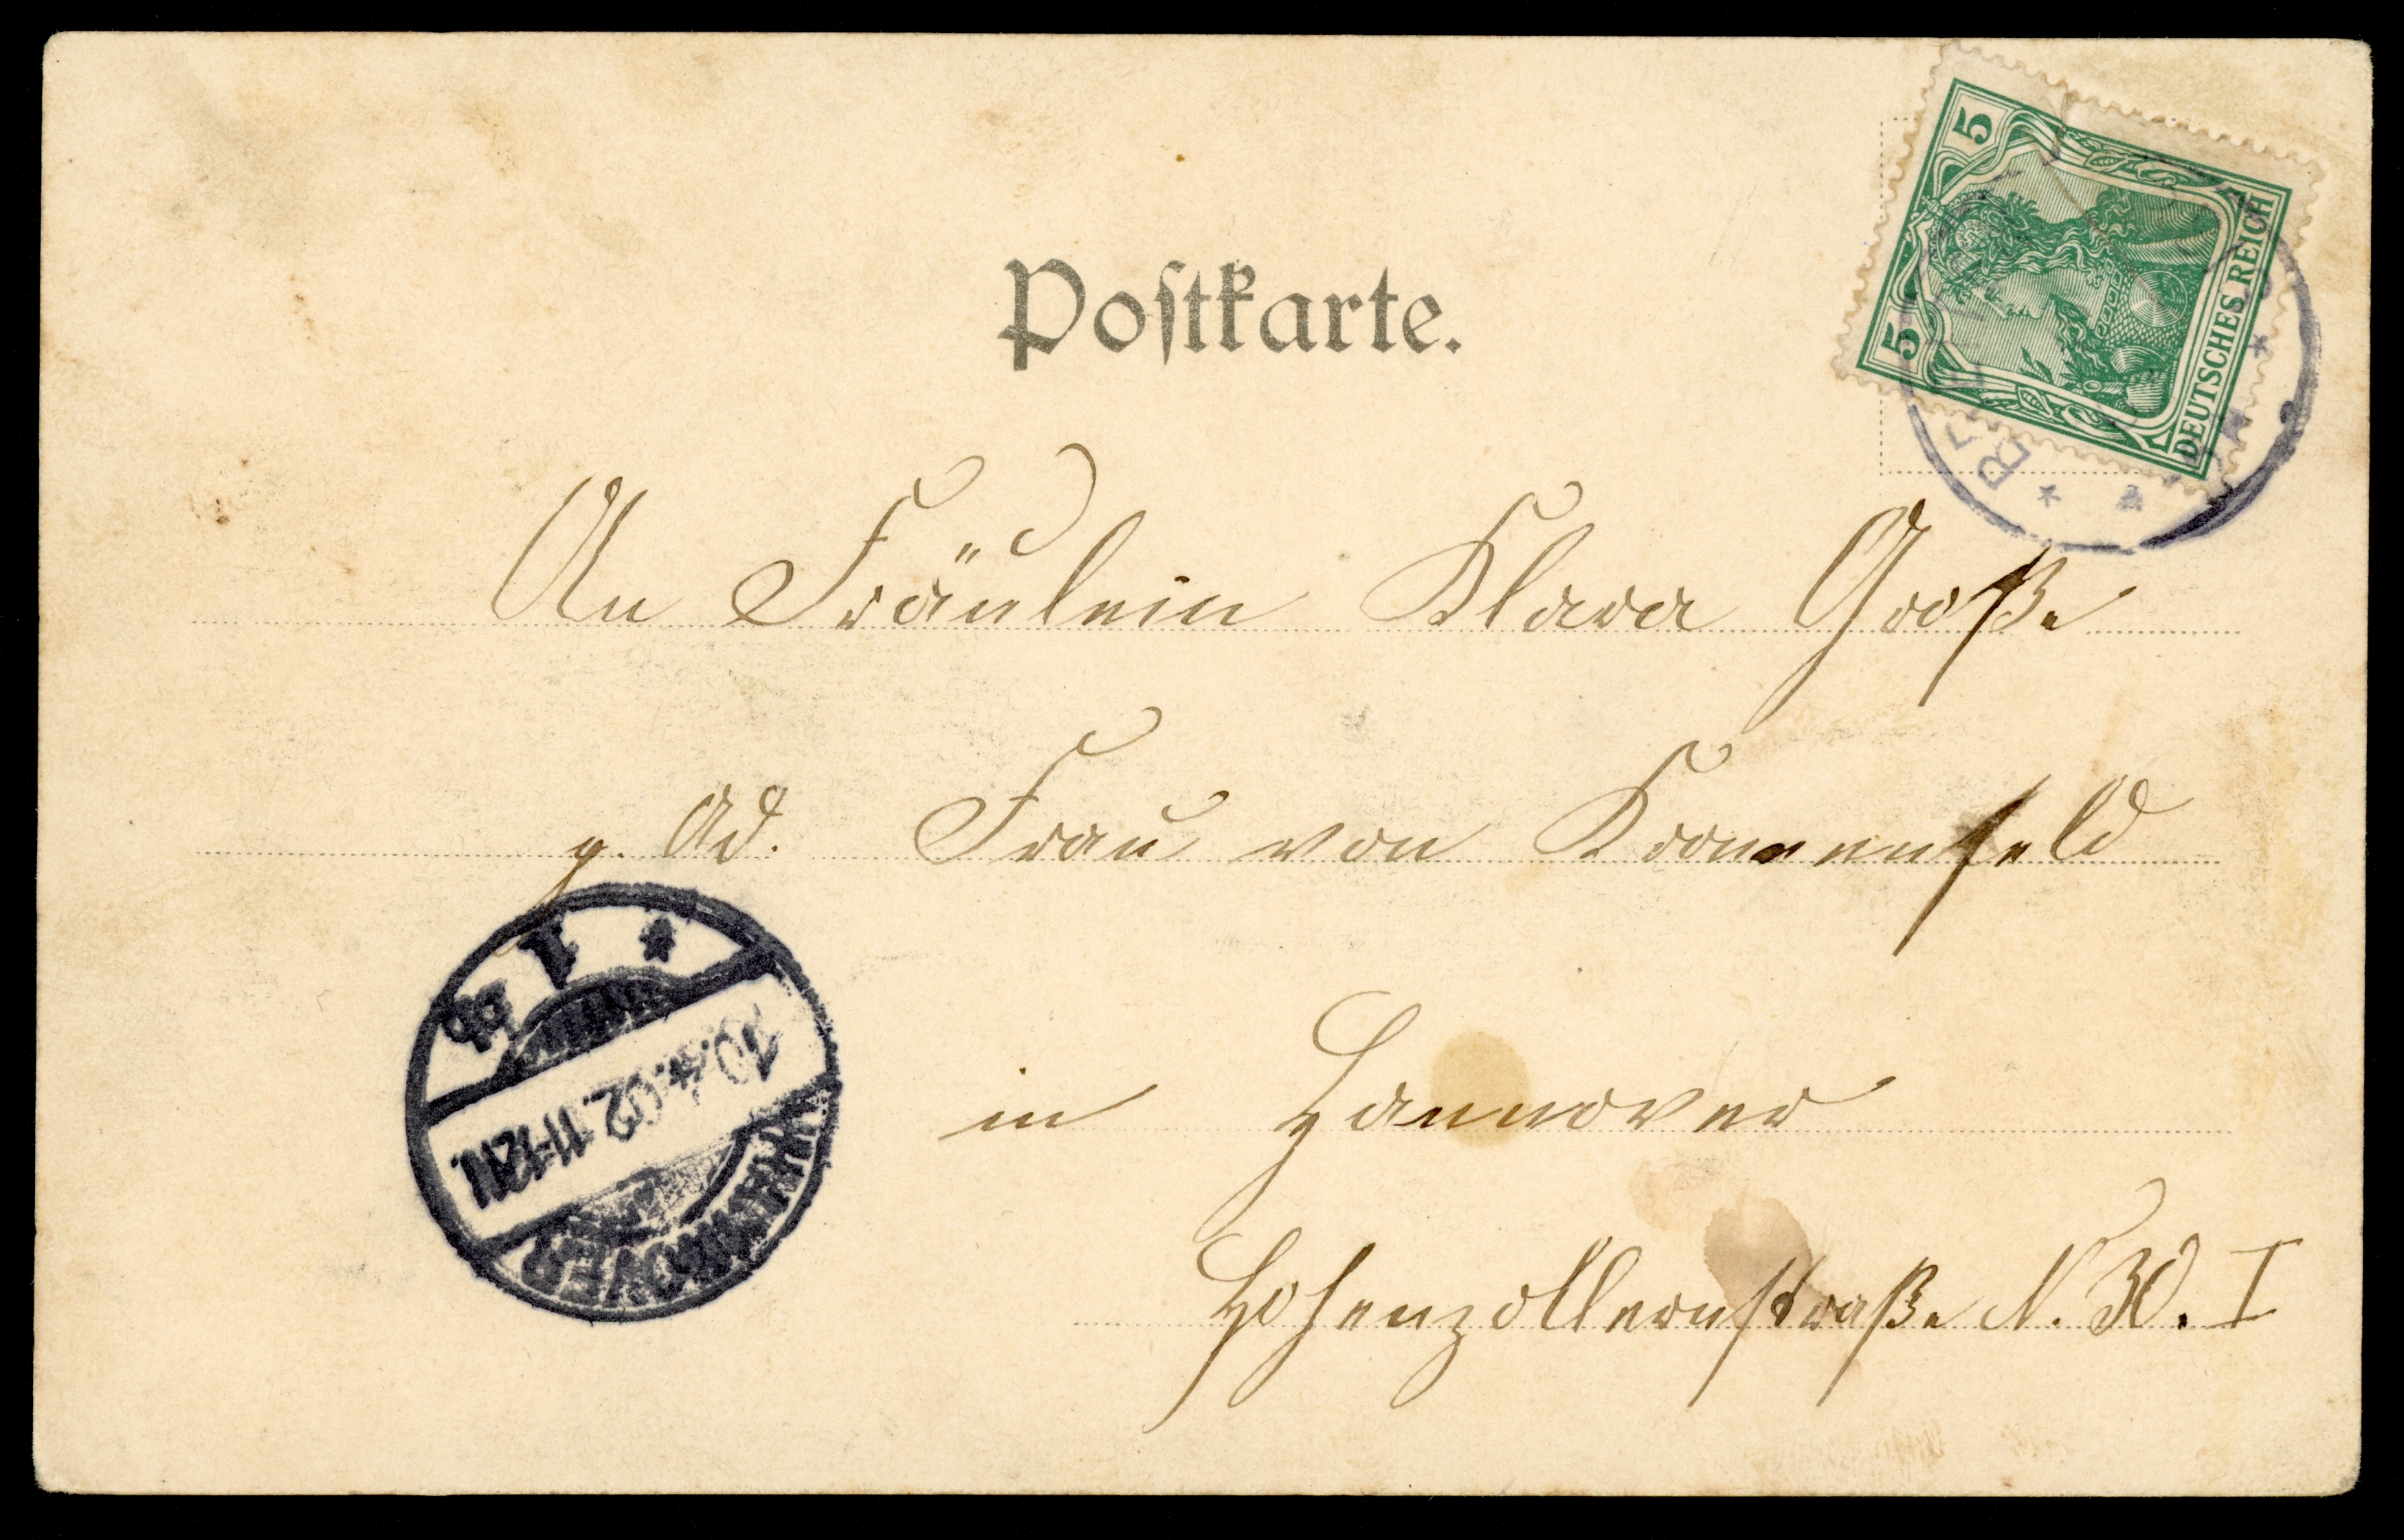 Postkarte.
5 5
DEUTSCHES REICH
An Fräulein Klara Große
p. Ad. Frau von Kronenfeld
in Hannover
Hohenzollernstraße N. 30. I
HANNOVER
10.4.02. 11-12N.
* 1